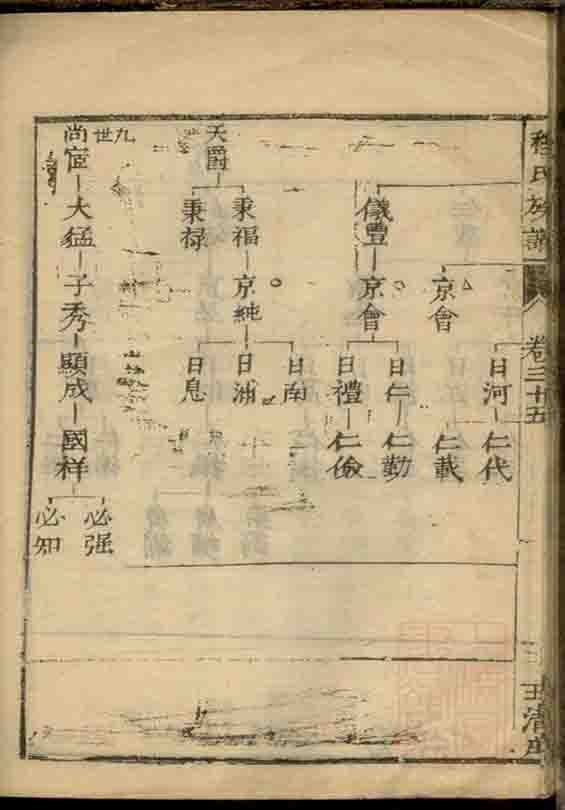 程氏族譜
卷三十五
日河
仁代
京會
仁載
儀豐
京會
日仁
仁勤
日禮
仁儉
天爵
秉福
京純
日南
日油
日息
秉禄
九世
尚宦
大猛
子秀
顯成
國祥
必强
必知